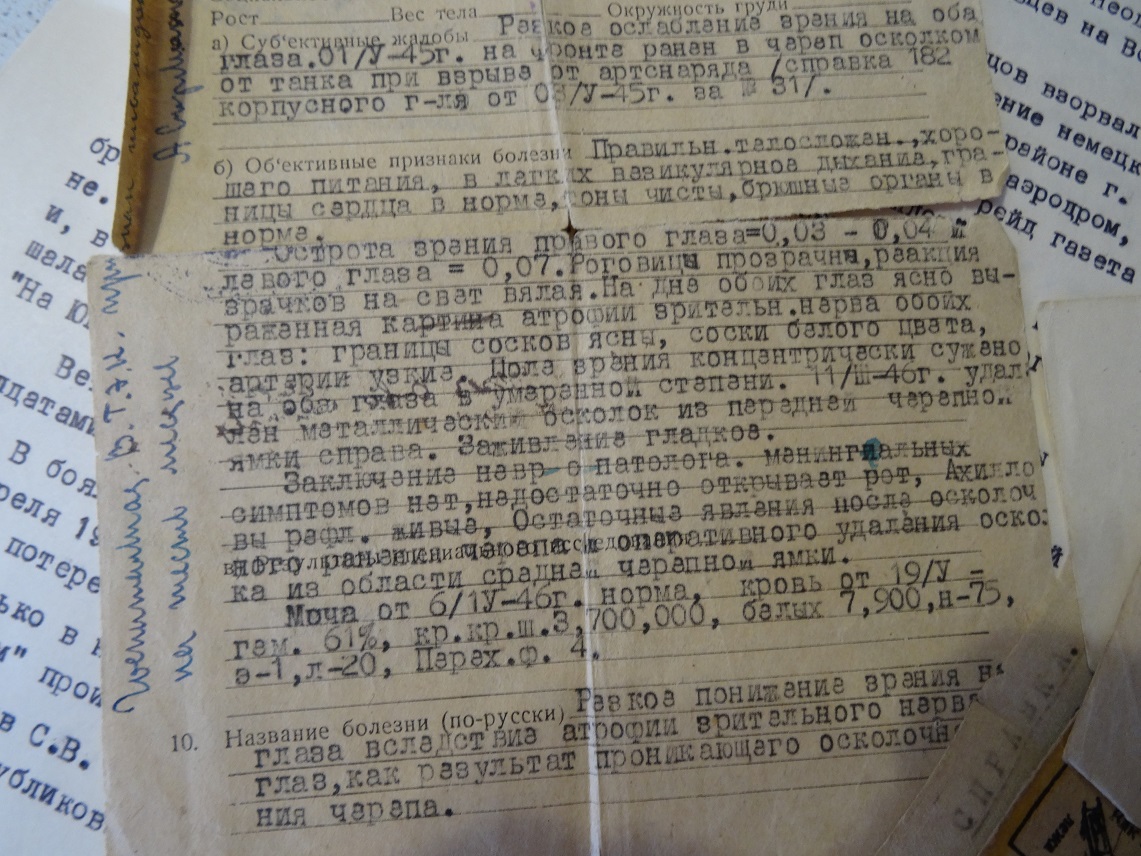 Рост          Вес тела          Окружность груди
а) Суб'ективные жалобы Резкое ослабление зрения на оба
глаза. 01/У-45г. на фронте ранен в череп осколком
от танка при взрыве от артснаряда /справка 182
корпусного г-ля от 03/У-45г. за № 31/.
б) Об'ективные признаки болезни Правильн.телосложен.,хоро-
шего питания, в легких везикулярное дыхание,гра-
ницы сердца в норме,тоны чисты,брюшные органы в
норме.
Острота зрения правого глаза=0,03 - 0,04 и
левого глаза = 0,07.Роговицы прозрачны,реакция
зрачков на свет вялая.На дне обоих глаз ясно вы-
раженная картина атрофии зрительн.нерва обоих
глаз: границы сосков ясны, соски белого цвета,
артерии узкие. Поле зрения концентрически сужено
на оба глаза в умеренной степени. 11/Ш-46г. удал
лен металлический осколок из передней черепной
ямки справа. Заживление гладкое.
Заключение невр-о-патолога. менингиальных
симптомов нет,недостаточно открывает рот, Ахилло
вы рефл. живые, Остаточные явления после осколоч
ного ранения черепа и оперативного удаления оско
ка из области средней черепной ямки.
Моча от 6/1У-46г. норма, кровь от 19/У -
гем. 61%, кр.кр.ш.3,700,000, белых 7,900,н-75,
э-1,л-20, Перех.ф. 4.
10. Название болезни (по-русски) Резкое понижение зрения н
глаза вследствие атрофии зрительного нерва
глаз,как результат проникающего осколочн
ния черепа.
на шесть месяцев
СПРАВКА.
бр
не.
и, в
шела
"На Ю
Ве
лдатами
В боя
реля 19
потере
ько в н
м" прои
в С.В.
убликов
цев на В
цов взорвал
ение немецк
районе г.
аэродром,
рейд газета